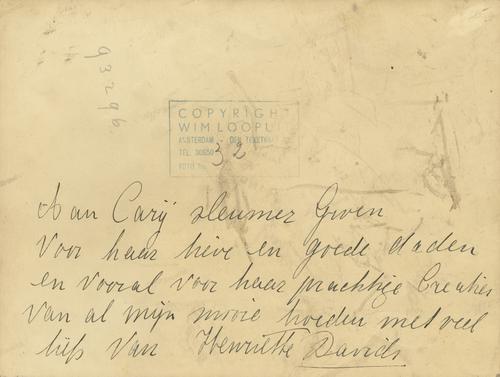 93296
COPYRIGHT
WIM LOOPU
AMSTERDAM - DEN
TEL. 30650
FOTO No. 32
Aan Carij Sleumer Groen
Voor haar lieve en goede daden
en vooral voor haar prachtige Creaties
van al mijn mooie hoeden met veel
liefs van Henriette Davids